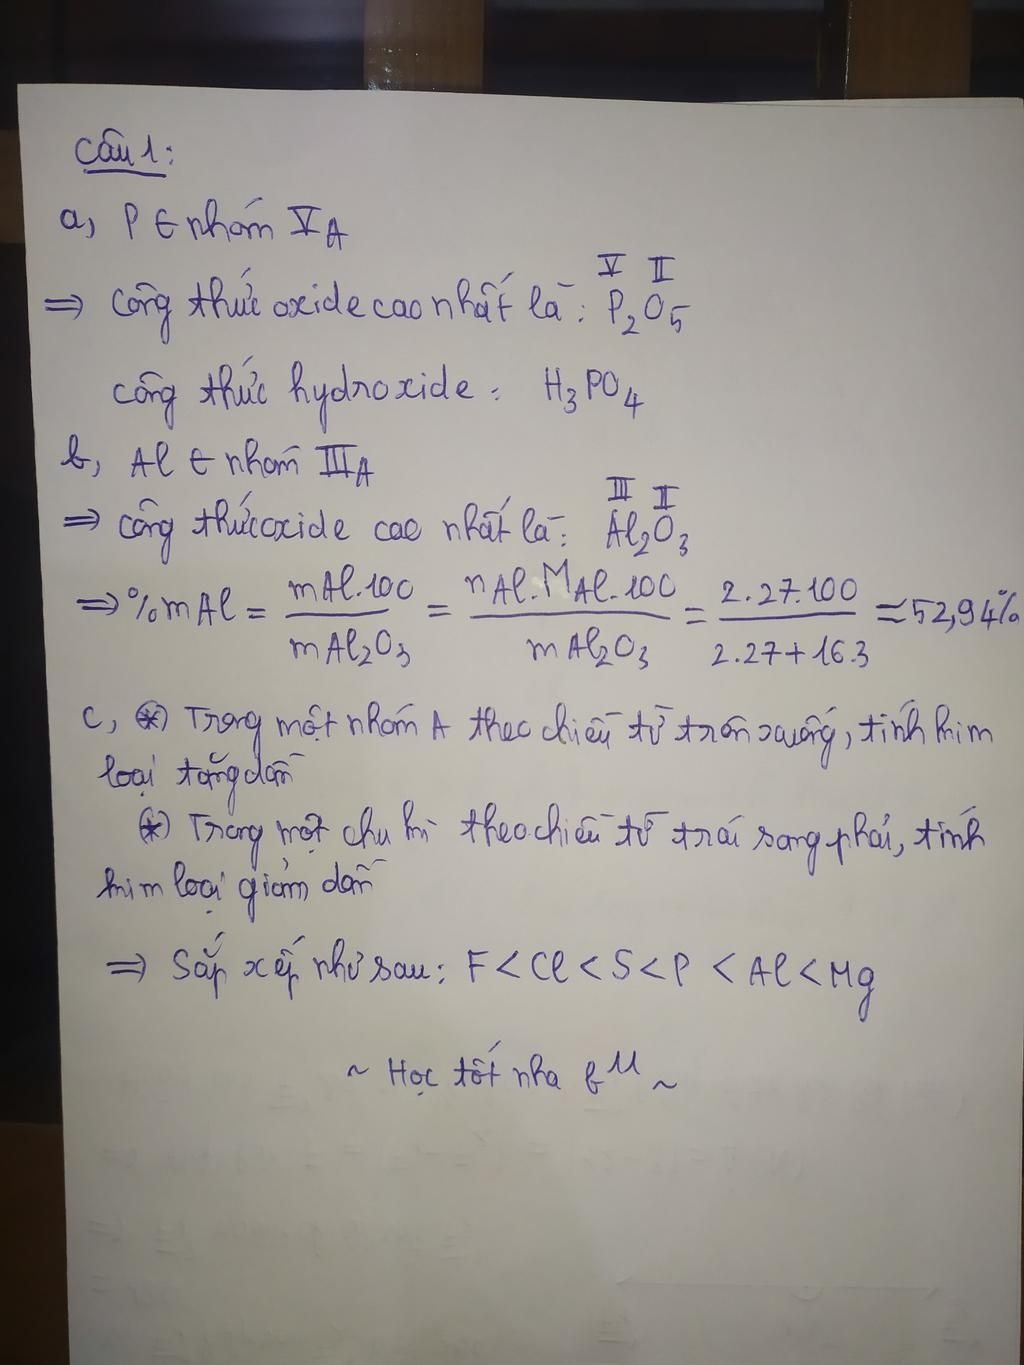 Câu 1:
a, P ∈ nhóm VA
V II
⇒ Công thức oxide cao nhất là: P2O5
công thức hydroxide: H3PO4
b, Al ∈ nhóm IIIA
III II
⇒ công thức oxide cao nhất là: Al2O3
⇒ %mAl = mAl.100 / mAl2O3 = nAl.MAl.100 / mAl2O3 = 2.27.100 / 2.27+16.3 ≈ 52,94%
c, (*) Trong một nhóm A theo chiều từ trên xuống, tính kim
loại tăng dần
(*) Trong một chu kì theo chiều từ trái sang phải, tính
kim loại giảm dần
⇒ Sắp xếp như sau: F < Cl < S < P < Al < Mg
~ Học tốt nha